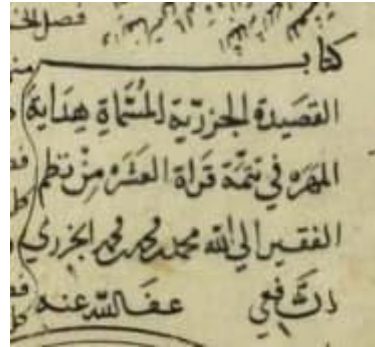 فصل
كتاب
القصيدة الجزرية المسماة هداية
المهره في تتمة قراة العشره من نظم
الفقير الي الله محمد بن محمد بن محمد الجزري
الشافعي عفا الله عنه